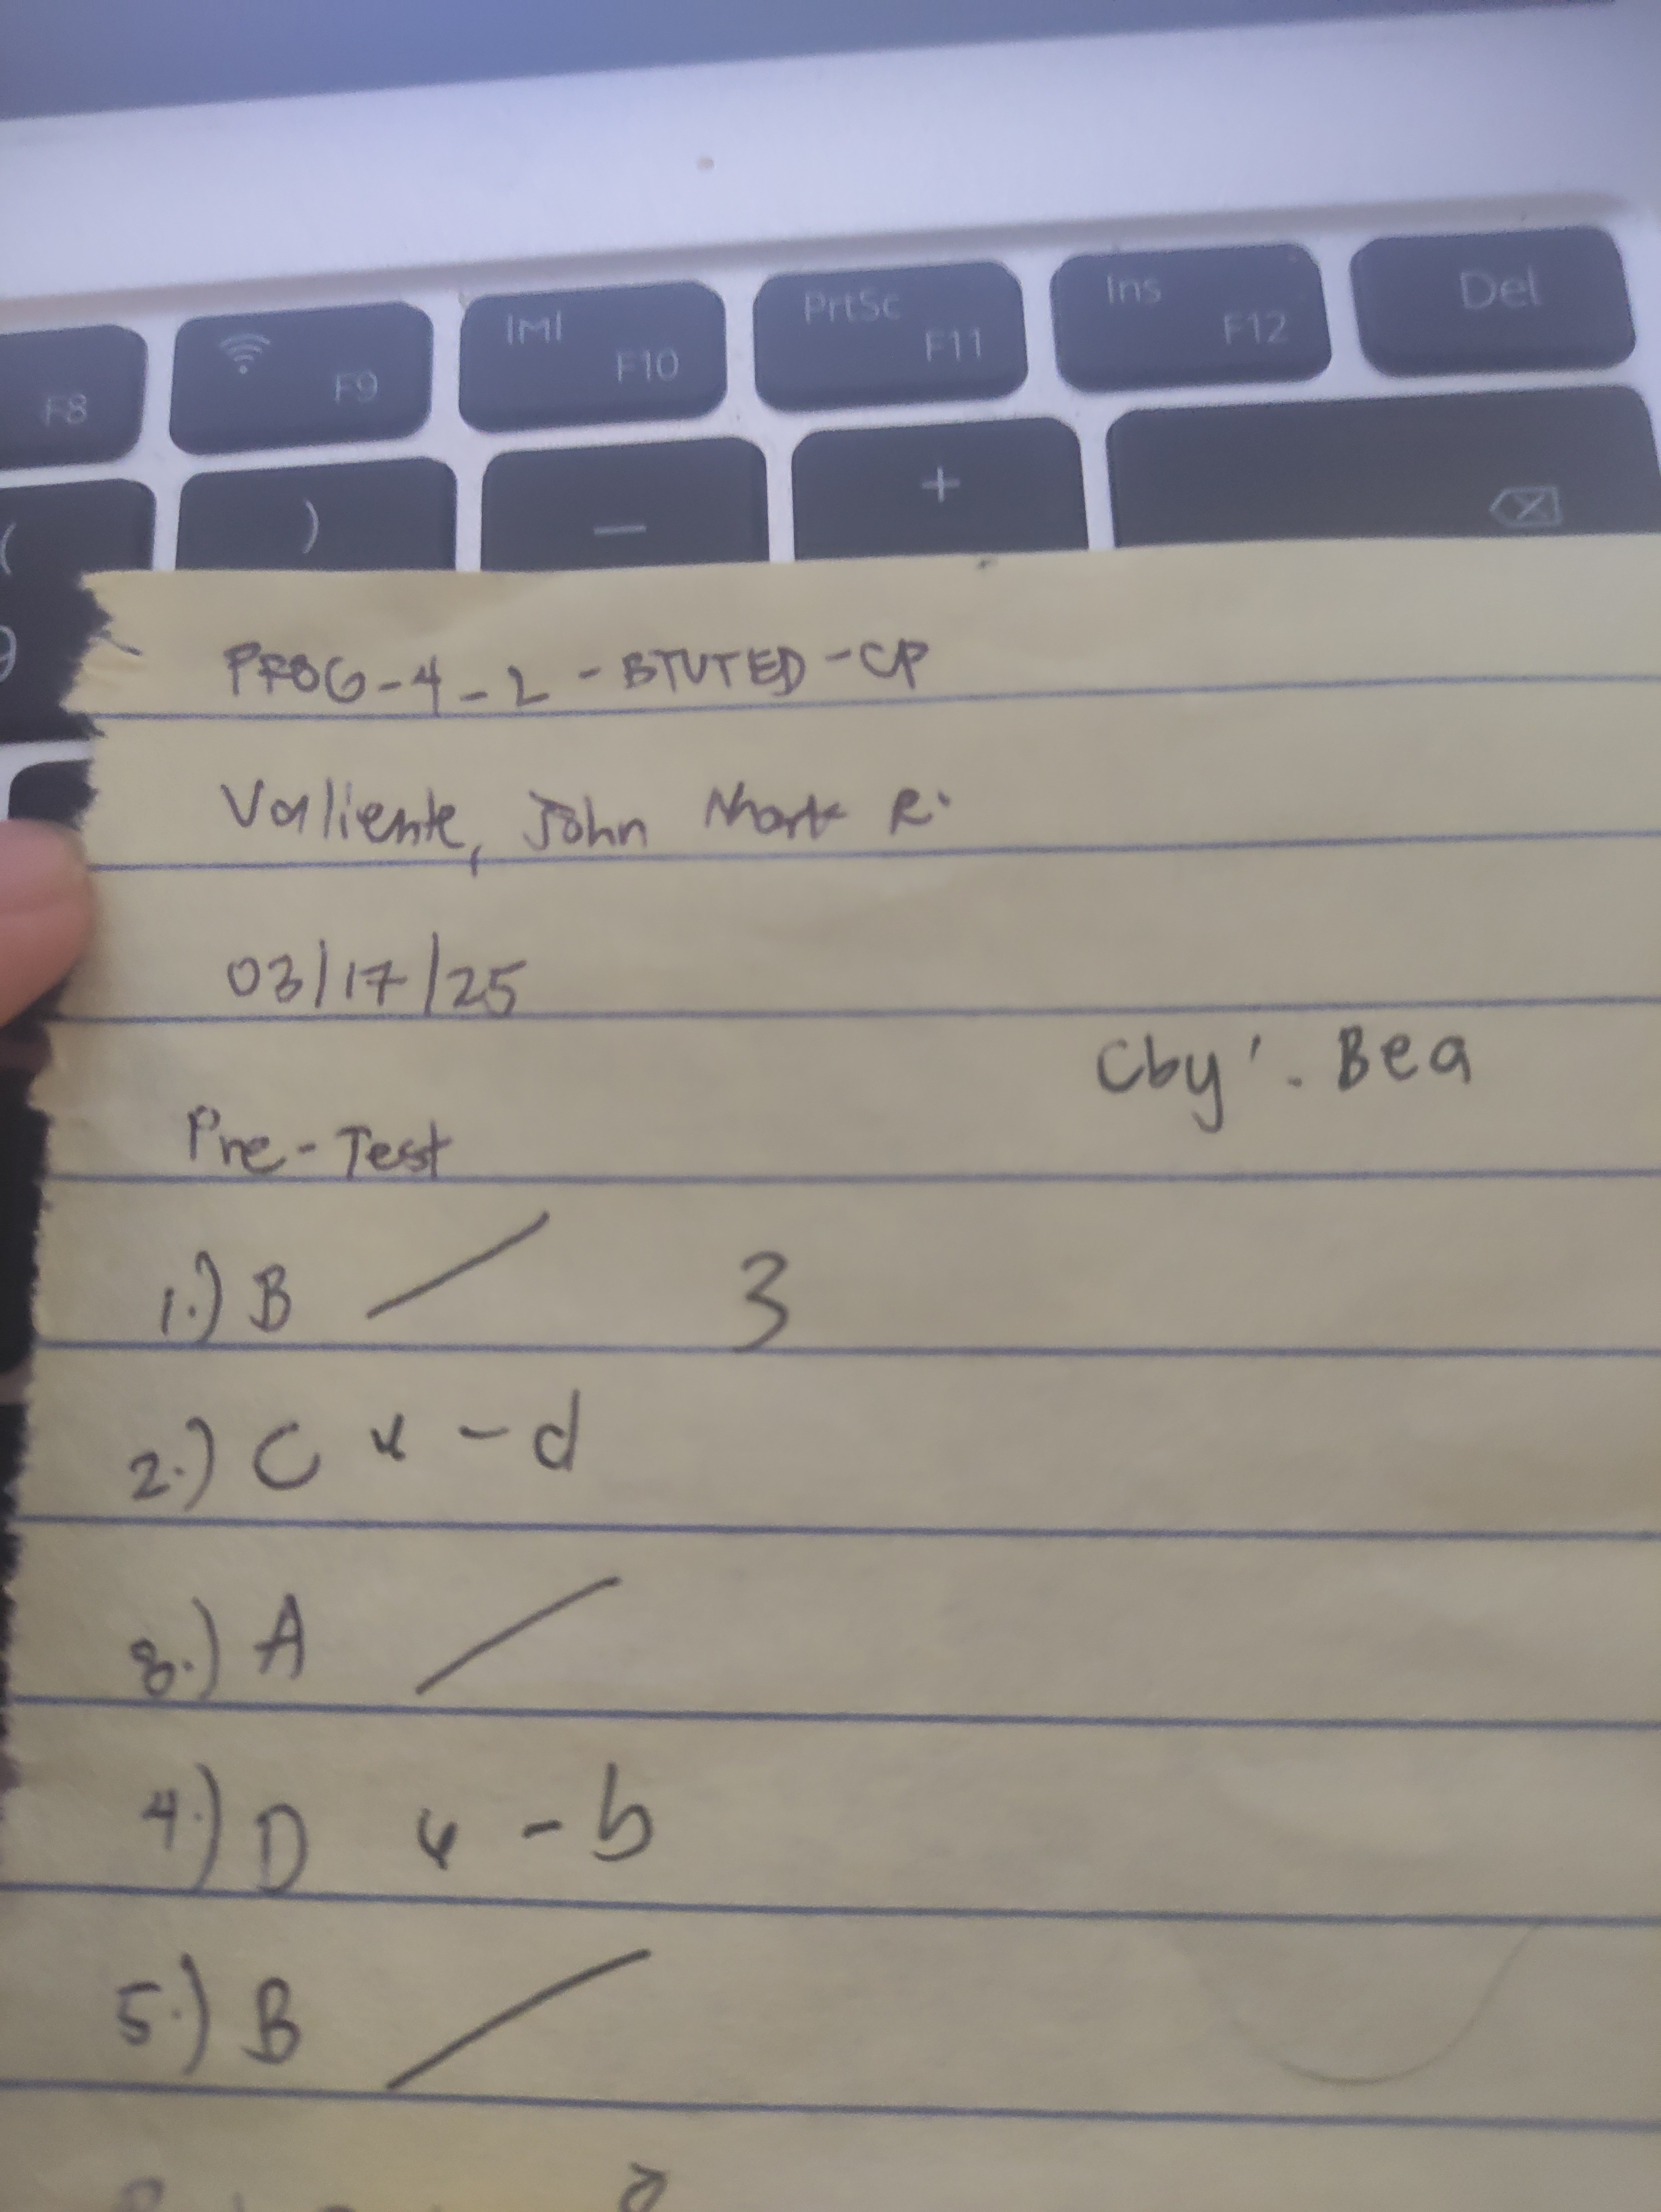 F8
F9
|M|
F10
PrtSc
F11
Ins
F12
Del
(
)
—
+
PROG-4-2-BTVTED-CP
Valiente, John Mark R.
03/17/25
Cby: Bea
Pre-Test
1.) B / 3
2.) C x - d
3.) A /
4.) D x - b
5.) B /